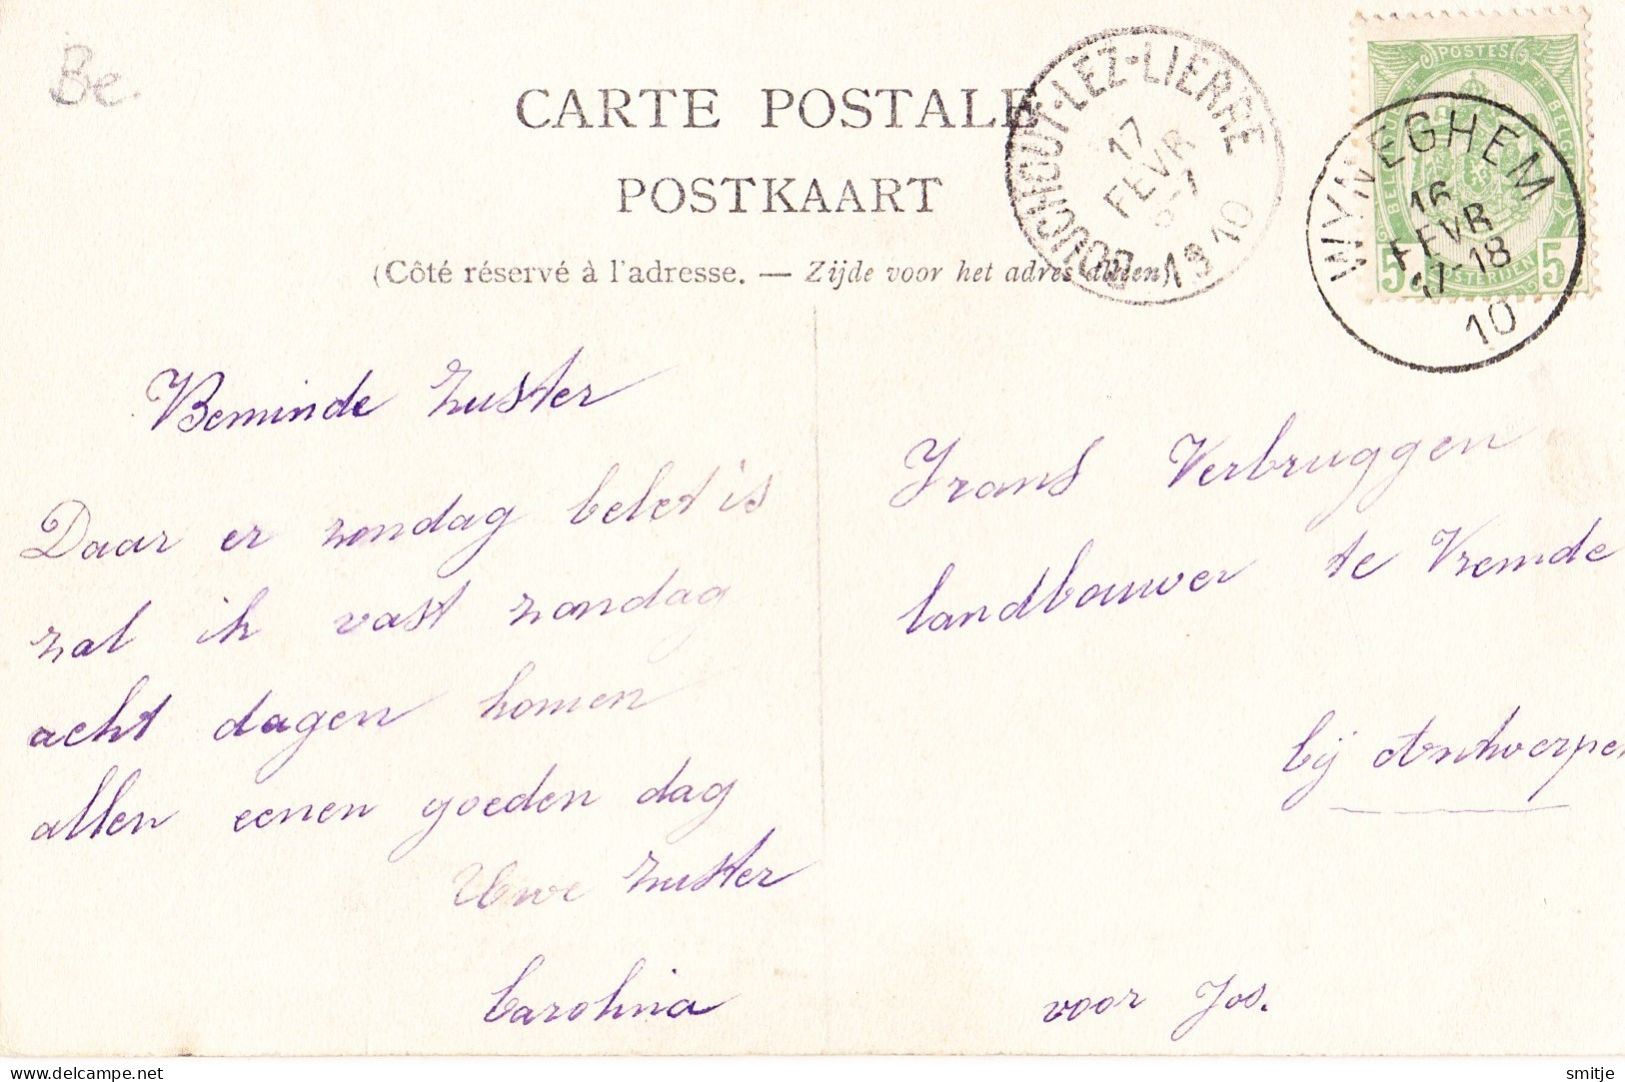 Be
CARTE POSTALE
POSTKAART
(Côté réservé à l'adresse. — Zijde voor het adres alleen)
BOUCHOUT-LEZ-LIERRE
17
FEVR
1910
POSTES
BELGIQUE BELGIË
5 5
WYNEGHEM
16
FEVR
17-18
10
Beminde zuster
Daar er zondag belet is
zal ik vast zondag
acht dagen komen
allen eenen goeden dag
Uwe zuster
Carolina
Frans Verbruggen
landbouwer te Vremde
bij Antwerpen
voor Jos.
smitje